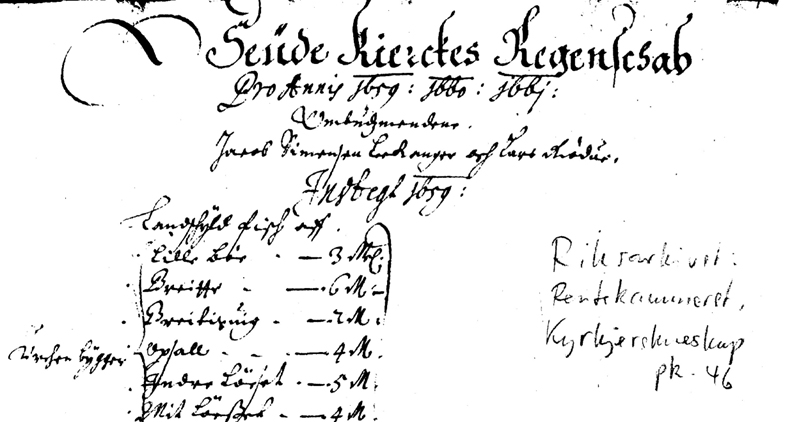 Seüde Kierckes Regenschab
Pro Annis 1659: 1660: 1661:
Ombudzmendene.
Jacob Simensen Leekanger och Lars
Indtegt 1659:
Landschyld Fisch aff.
Lille Bøe - — 3 Mrk
Breitte - — 6 M
Breitizung - — 2 M
Kirchen bygger
Opsall - - — 4 M
Indre Løeset - — 5 M
Mit Løeset - — 4 M
Riksarkivet:
Rentekammeret,
Kyrkjerekneskap
pk. 46